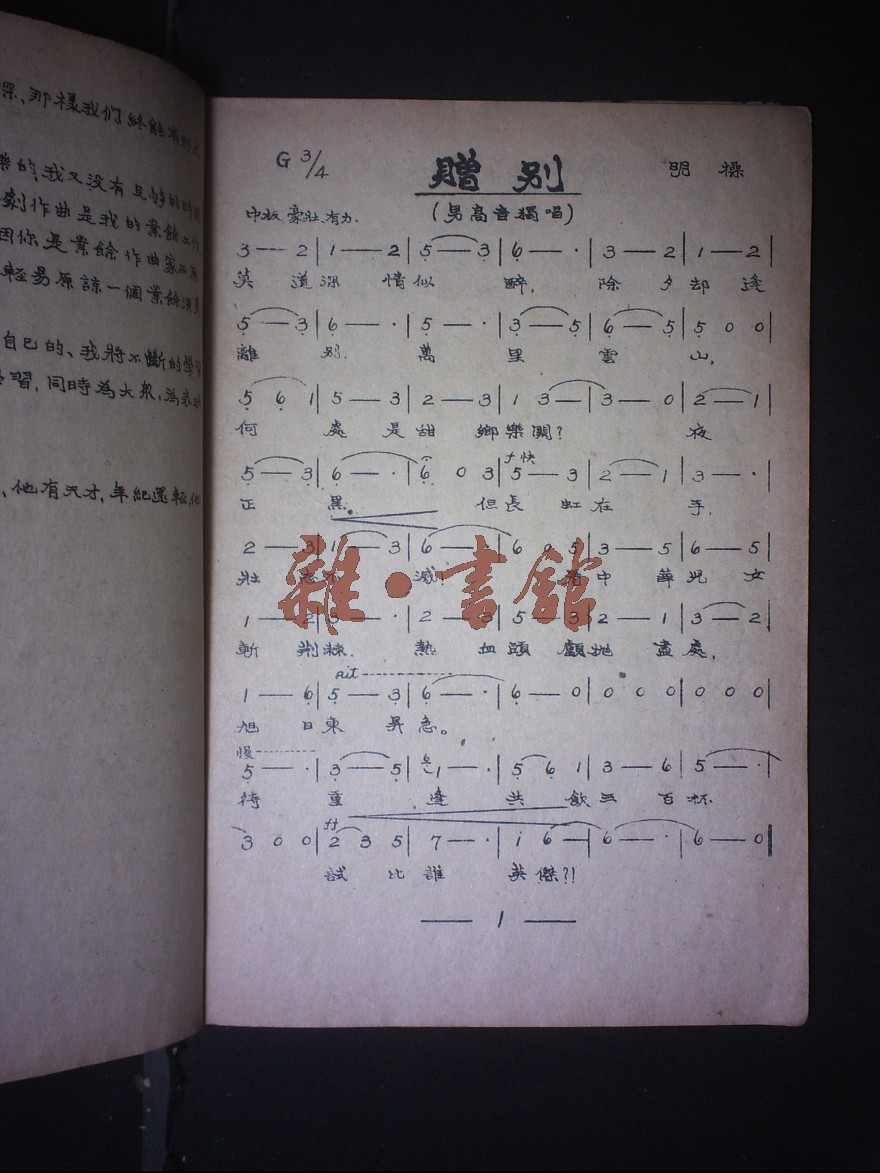 深、那樣我們終能有到
樂的我又没有足够的時間
劇作曲是我的業餘工作
因你是業餘作曲家而原
輕易原諒一個業餘演員
自己的、我將不斷的學習
習，同時為大眾，為
、他有天才，年紀還輕，他
G 3/4 贈别 明操
中板、豪壯、有力、 (男高音獨唱)
3 — — 2 | 1 — 2 | 5 — 3 | 6 — · | 3 — 2 | 1 — 2
莫道深情似醉，除夕却逢
5 — 3 | 6 — · | 5 — · | 3 — 5 | 6 — 5 | 5 0 0 |
離别．萬里雲山，
5 6 1 | 5 — 3 | 2 — 3 | 1 3 — | 3 — 0 | 2 — 1 |
何處是甜鄉樂闋？夜
f 快
5 — 3 | 6 — · | 6 0 3 | 5 — 3 | 2 — 1 | 3 — · |
正黑。但長虹在手，
2 — 3 | 1 — 3 | 6 — · | 6 0 5 | 3 — 5 | 6 — 5 |
壯滅！中華兒女
1 — 2 | 3 — · | 2 — 3 | 5 — 3 | 2 — 1 | 3 — 2 |
斬荆棘．熱血頭顱抛盡處，
rit
1 — 6 | 5 — 3 | 6 — · | 6 — 0 | 0 0 0 | 0 0 0 |
旭日東昇急。
慢
5 — · | 3 — 5 | 1 — · | 5 6 1 | 3 — 6 | 5 — · |
待重逢共飲三百杯
ff
3 0 0 | 2 3 5 | 7 — · | i 6 — | 6 — · | 6 — 0 |
試比誰英傑?!
— 1 —
雜·書館